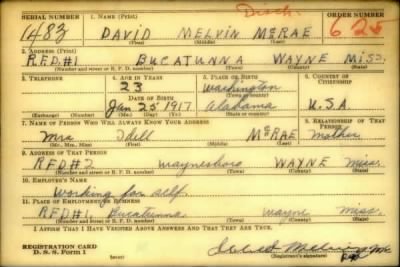 Disch.
SERIAL NUMBER 1. NAME (Print) ORDER NUMBER
1483 DAVID MELVIN McRAE 625
(First) (Middle) (Last)
2. ADDRESS (Print)
RFD#1 BUCATUNNA WAYNE MISS.
(Number and street or R. F. D. number) (Town) (County) (State)
3. TELEPHONE 4. AGE IN YEARS 5. PLACE OF BIRTH 6. COUNTRY OF CITIZENSHIP
23 Washington
DATE OF BIRTH (Town or county)
Jan 25 1917 Alabama U.S.A.
(Exchange) (Number) (Mo.) (Day) (Yr.) (State or country)
7. NAME OF PERSON WHO WILL ALWAYS KNOW YOUR ADDRESS 8. RELATIONSHIP OF THAT PERSON
Mrs Idell McRAE Mother
(Mr., Mrs., Miss) (First) (Middle) (Last)
9. ADDRESS OF THAT PERSON
RFD#2 Waynesboro WAYNE Miss.
(Number and street or R. F. D. number) (Town) (County) (State)
10. EMPLOYER'S NAME
Working for self.
11. PLACE OF EMPLOYMENT OR BUSINESS
RFD#1 Bucatunna Wayne Miss.
(Number and street or R. F. D. number) (Town) (County) (State)
I AFFIRM THAT I HAVE VERIFIED ABOVE ANSWERS AND THAT THEY ARE TRUE.
REGISTRATION CARD
D. S. S. Form 1
(over) (Registrant's signature)